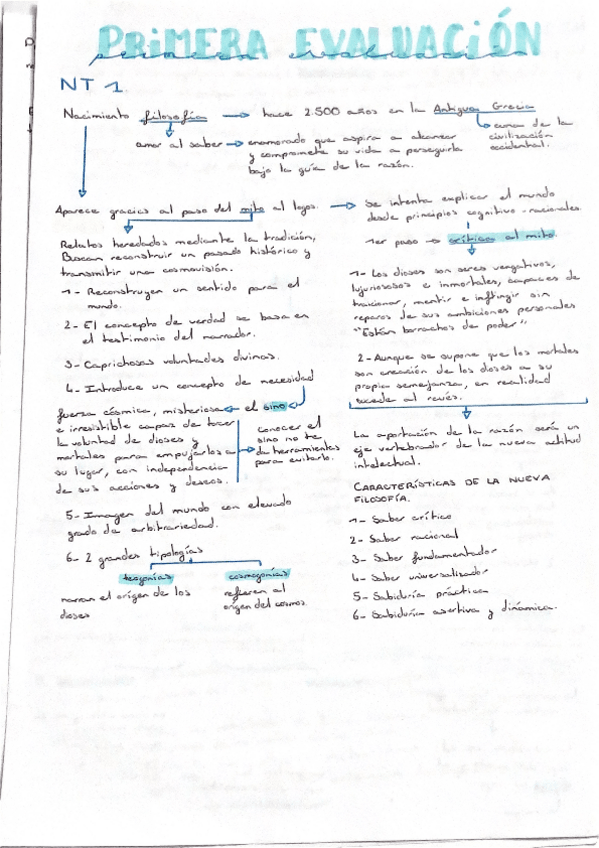 PRIMERA EVALUACIÓN
primera evaluación
NT 1.
Nacimiento filosofía → hace 2.500 años en la Antigua Grecia
amor al saber → enamorado que aspira a alcanzar
y compromete su vida a perseguirla
bajo la guía de la razón.
cuna de la
civilización
occidental.
Aparece gracias al paso del mito al logos. → Se intenta explicar el mundo
desde principios cognitivo-racionales.
Relatos heredados mediante la tradición,
Buscan reconstruir un pasado histórico y
transmitir una cosmovisión.
1- Reconstruyen un sentido para el
mundo.
2- El concepto de verdad se basa en
el testimonio del narrador.
3- Caprichosas voluntades divinas.
4- Introduce un concepto de necesidad
fuerza cósmica, misteriosa ← el sino
e irresistible capaz de torcer
la voluntad de dioses y
mortales para empujarlos a
su lugar, con independencia
de sus acciones y deseos.
conocer el
sino no te
da herramientas
para evitarlo.
5- Imagen del mundo con elevado
grado de arbitrariedad.
6- 2 grandes tipologías
teogonías
narran el origen de los
dioses
cosmogonías
refieren al
origen del cosmos.
1er paso → crítica al mito.
1- Los dioses son seres vengativos,
lujuriososos e inmortales, capaces de
traicionar, mentir e infringir sin
reparos de sus ambiciones personales
"Están borrachos de poder"
2- Aunque se supone que los mortales
son creación de los dioses a su
propia semejanza, en realidad
sucede al revés.
La aportación de la razón será un
eje vertebrador de la nueva actitud
intelectual.
CARACTERÍSTICAS DE LA NUEVA
FILOSOFÍA.
1- Saber crítico
2- Saber racional
3- Saber fundamentador
4- Saber universalizador
5- Sabiduría práctica
6- Sabiduría asertiva y dinámica.